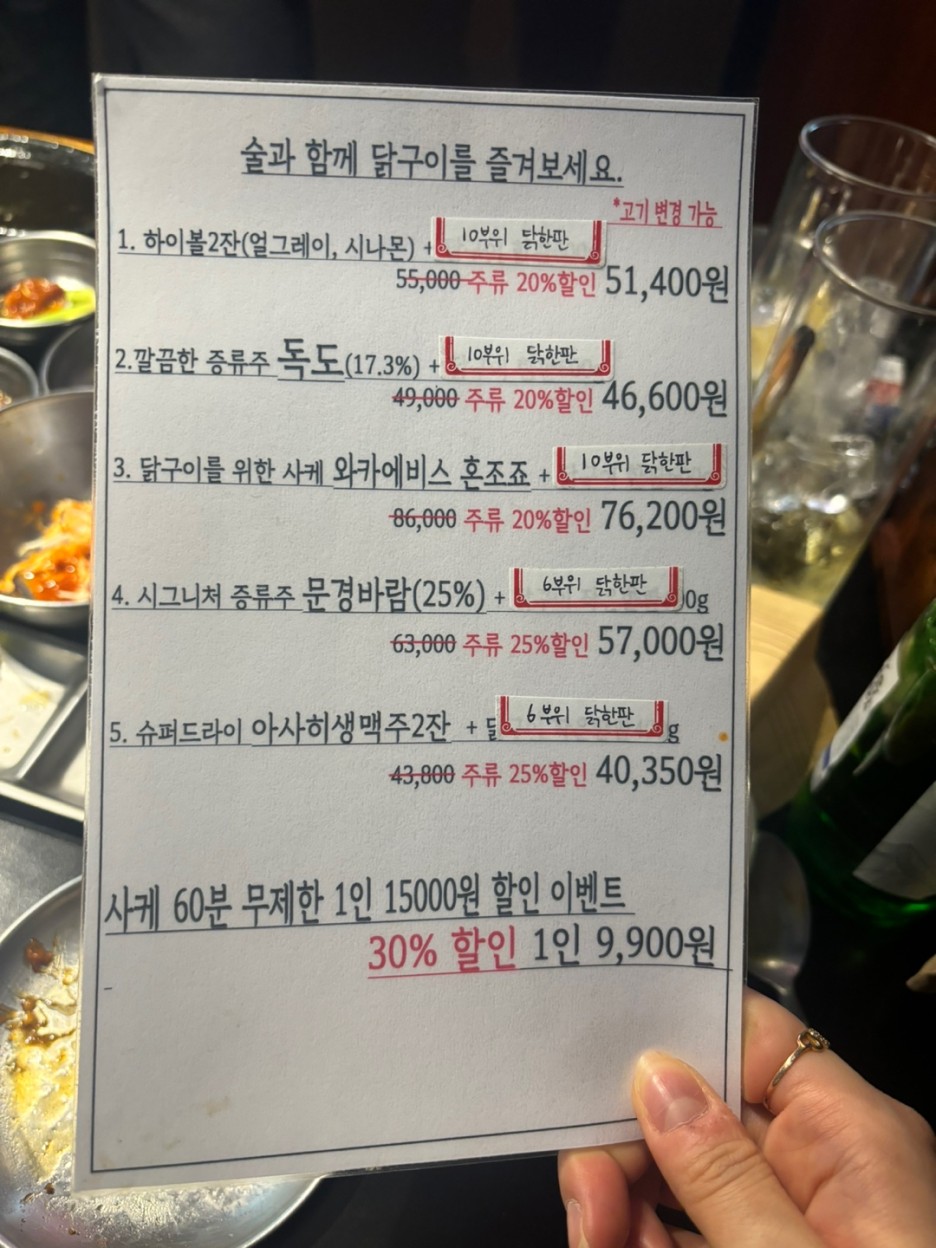 술과 함께 닭구이를 즐겨보세요.
*고기 변경 가능
1. 하이볼2잔(얼그레이, 시나몬) + 10부위 닭한판
55,000 주류 20%할인 51,400원
2.깔끔한 증류주 독도(17.3%) + 10부위 닭한판
49,000 주류 20%할인 46,600원
3. 닭구이를 위한 사케 와카에비스 혼조죠 + 10부위 닭한판
86,000 주류 20%할인 76,200원
4. 시그니처 증류주 문경바람(25%) + 6부위 닭한판 0g
63,000 주류 25%할인 57,000원
5. 슈퍼드라이 아사히생맥주2잔 + 6부위 닭한판 g
43,800 주류 25%할인 40,350원
사케 60분 무제한 1인 15000원 할인 이벤트
30% 할인 1인 9,900원